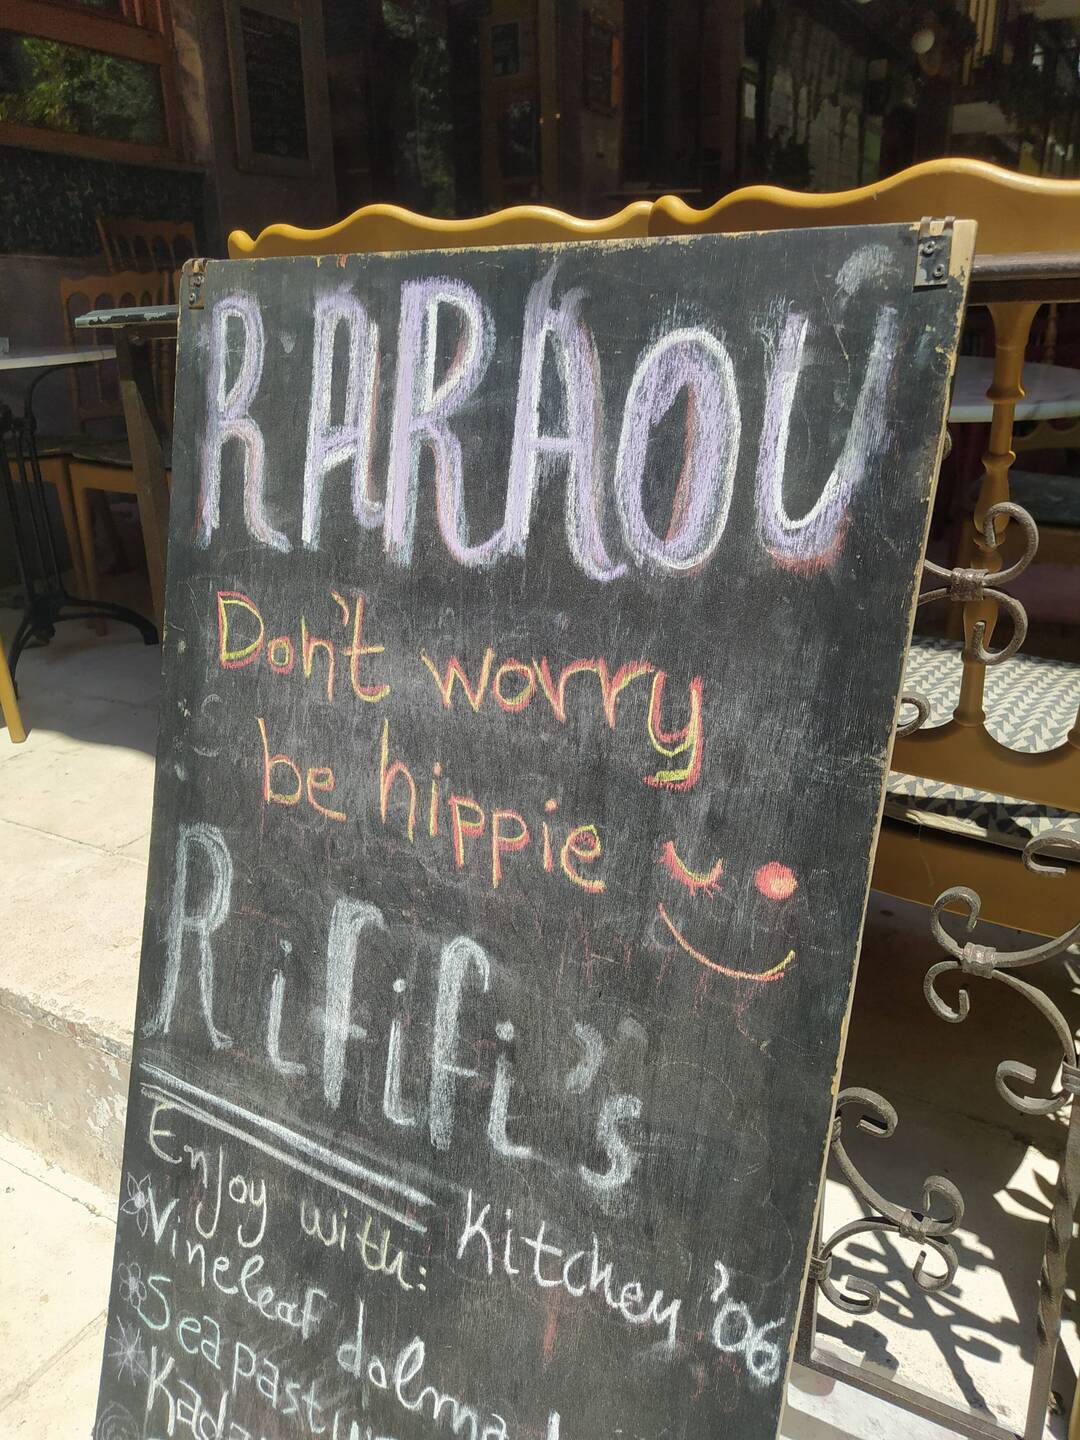 RARAOU
Don't worry
be hippie
Rififi's
Kitchen '06
Enjoy with:
Vineleaf dolma
Seapast
Kad